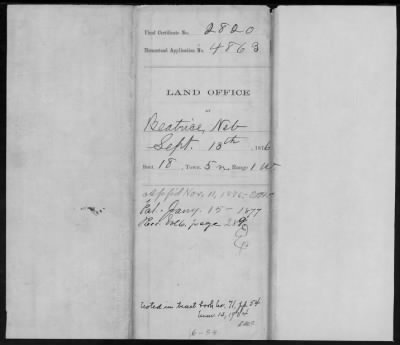 Final Certificate No. 2820
Homestead Application No. 4863
LAND OFFICE
at
Beatrice, Neb
Sept. 13th, 1876
Sect. 18, Town. 5 n, Range 1 W.
App'd Nov. 11, 1876
Pat. Jany. 15 - 1877
Rec. Vol 6. page 289
Noted in tract book Vo. 71, pg 54
6-54